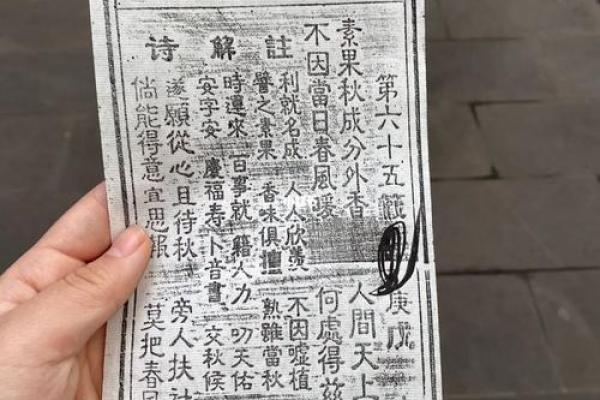 第六十五籤 庚戌
素果秋成分外香 人間天上
不因當日春風暖 何處得
註解
利就名成 人人欣羨 不因噓植
譬之素果 香味俱擅 熟雖當秋
時運來 百事就 藉人力 叨天佑
安字安 慶福壽 卜音書 交秋候
诗
遂願從心且待秋 旁人扶
倘能得意宜思報 莫把春